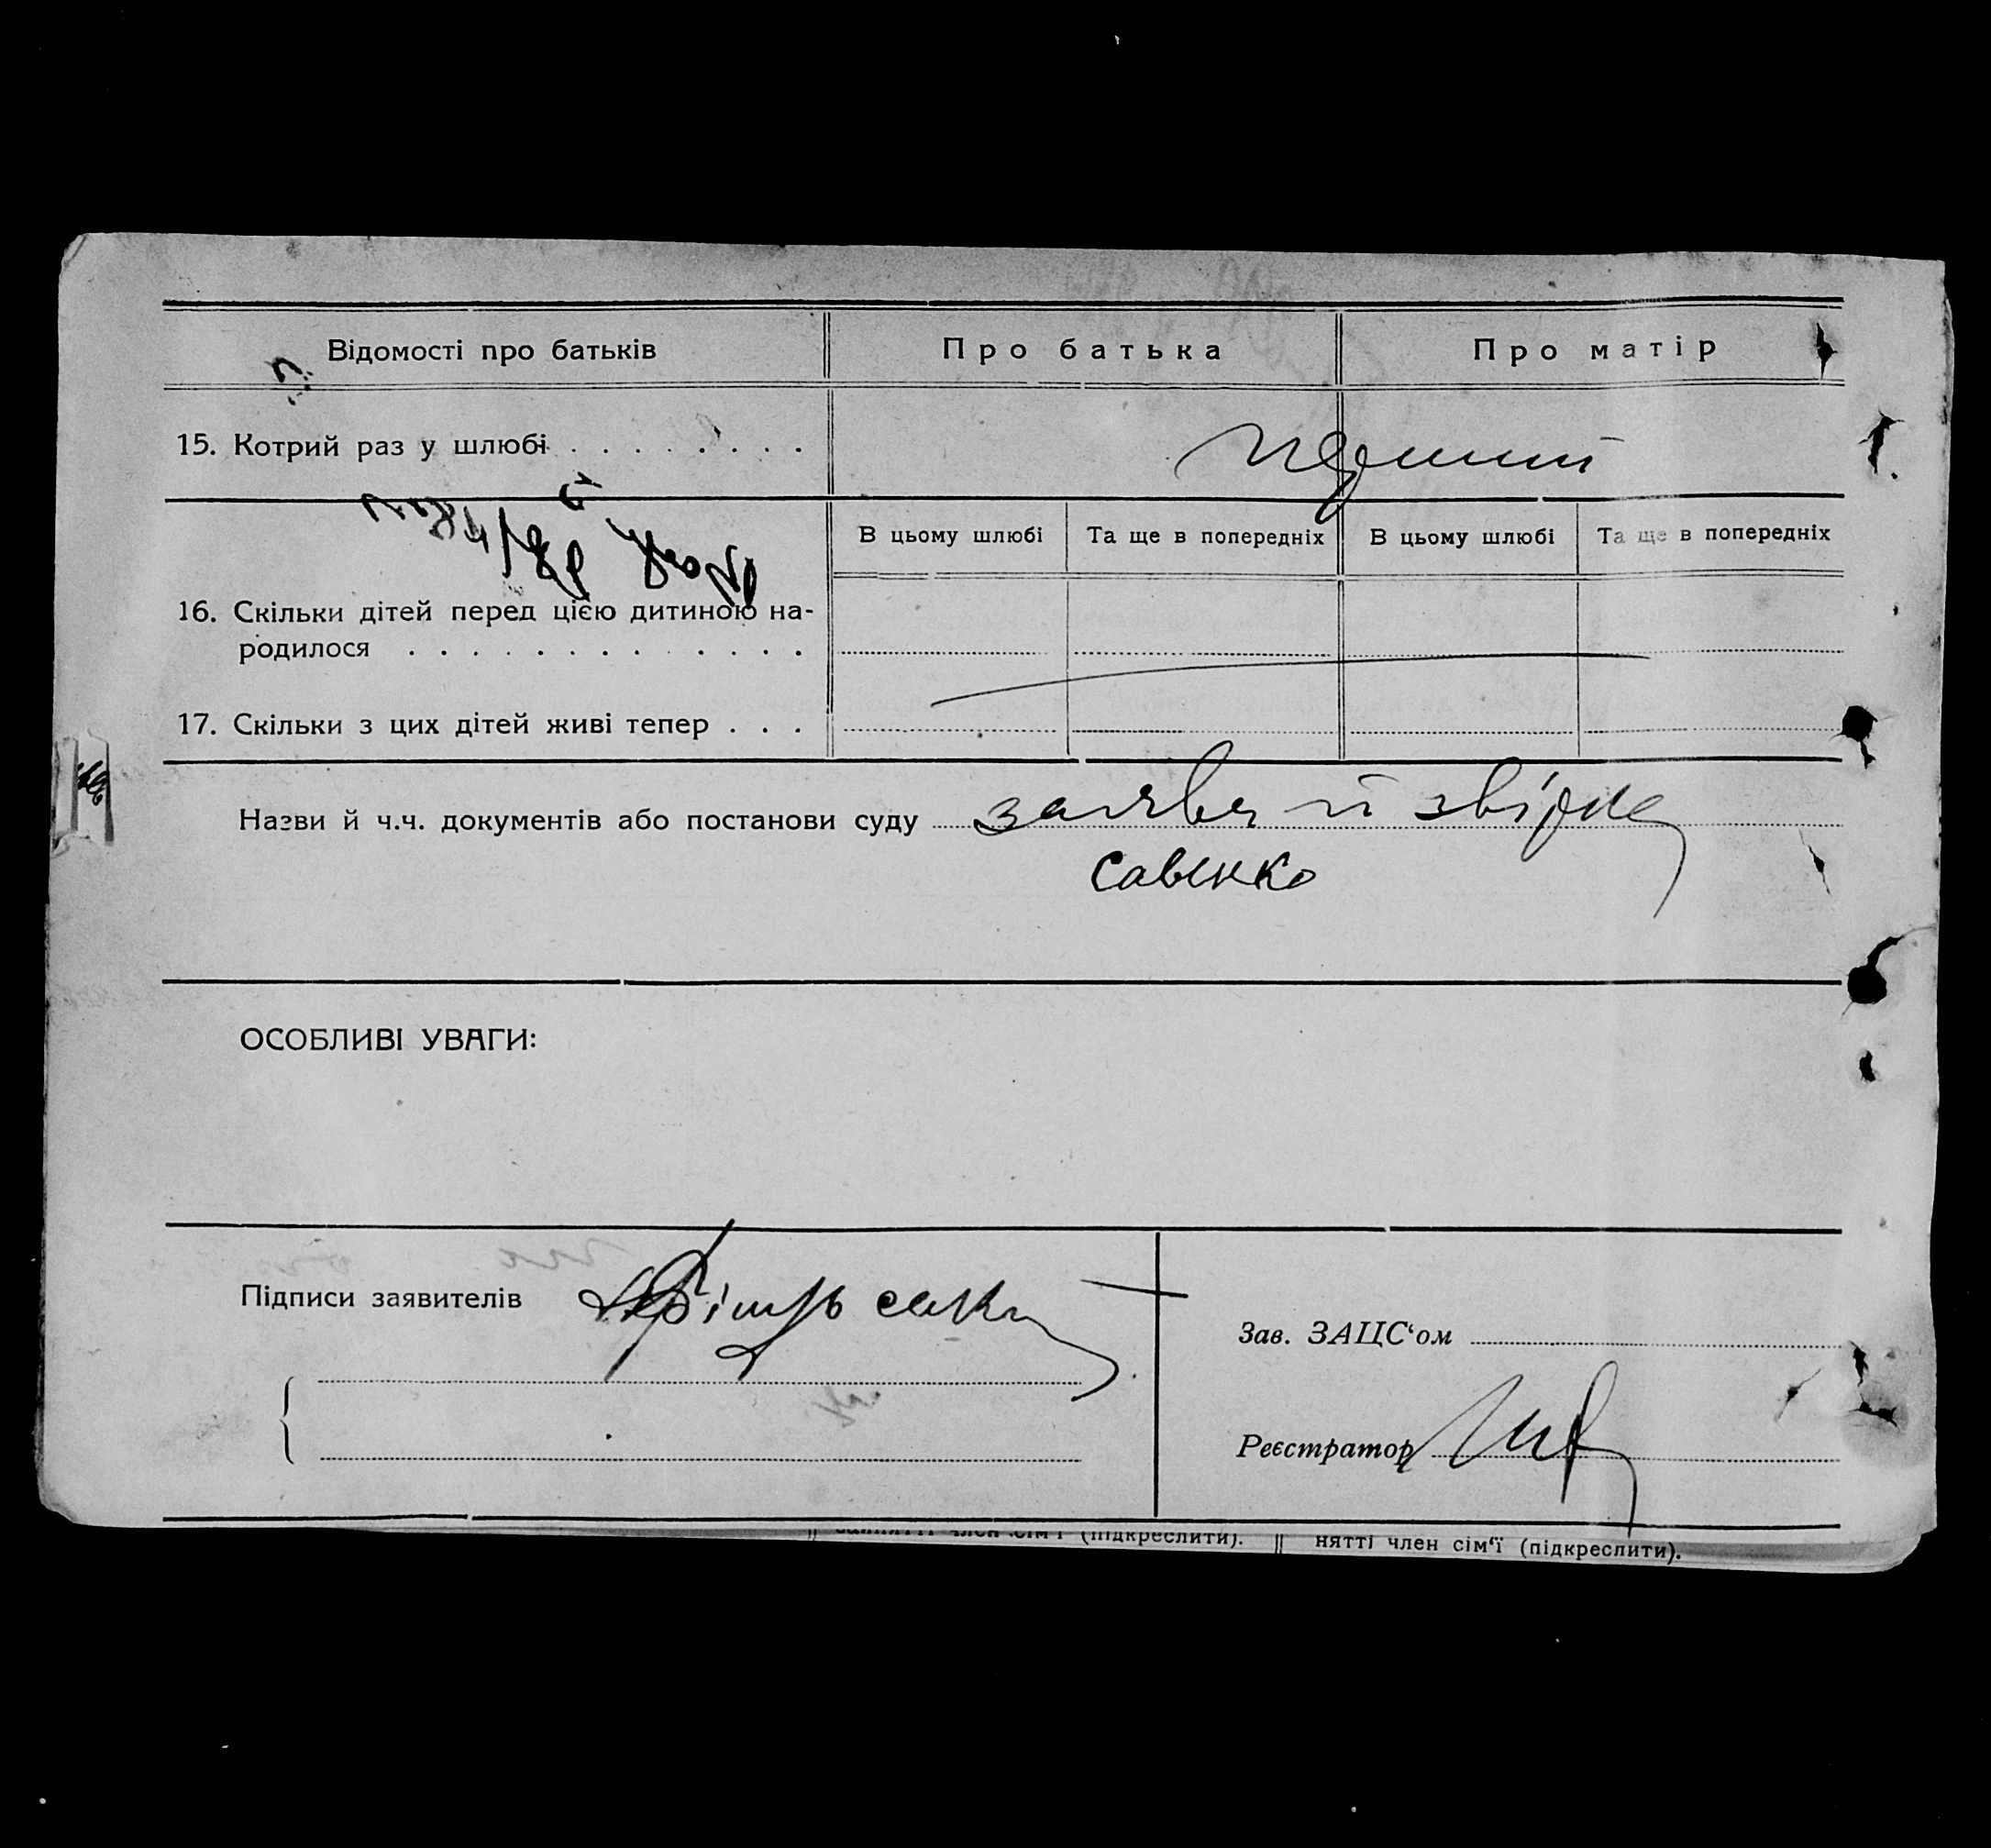 Відомості про батьків Про батька Про матір
15. Котрий раз у шлюбі . . . . . . . . перший
В цьому шлюбі Та ще в попередніх В цьому шлюбі Та ще в попередніх
16. Скільки дітей перед цією дитиною на-
родилося . . . . . . . . . . . . .
17. Скільки з цих дітей живі тепер . . .
Назви й ч.ч. документів або постанови суду заява й звірка
Савенко
ОСОБЛИВІ УВАГИ:
Підписи заявителів
Зав. ЗАЦС‘ом
Реєстратор
член сім‘ї (підкреслити). нятті член сім‘ї (підкреслити).